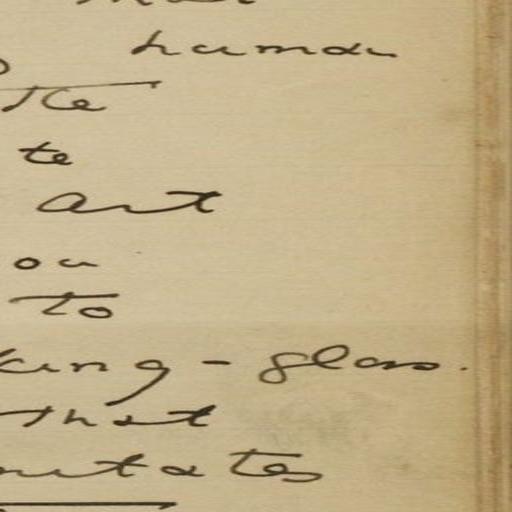 human
the
te
art
on
to
king-glass.
that
tates